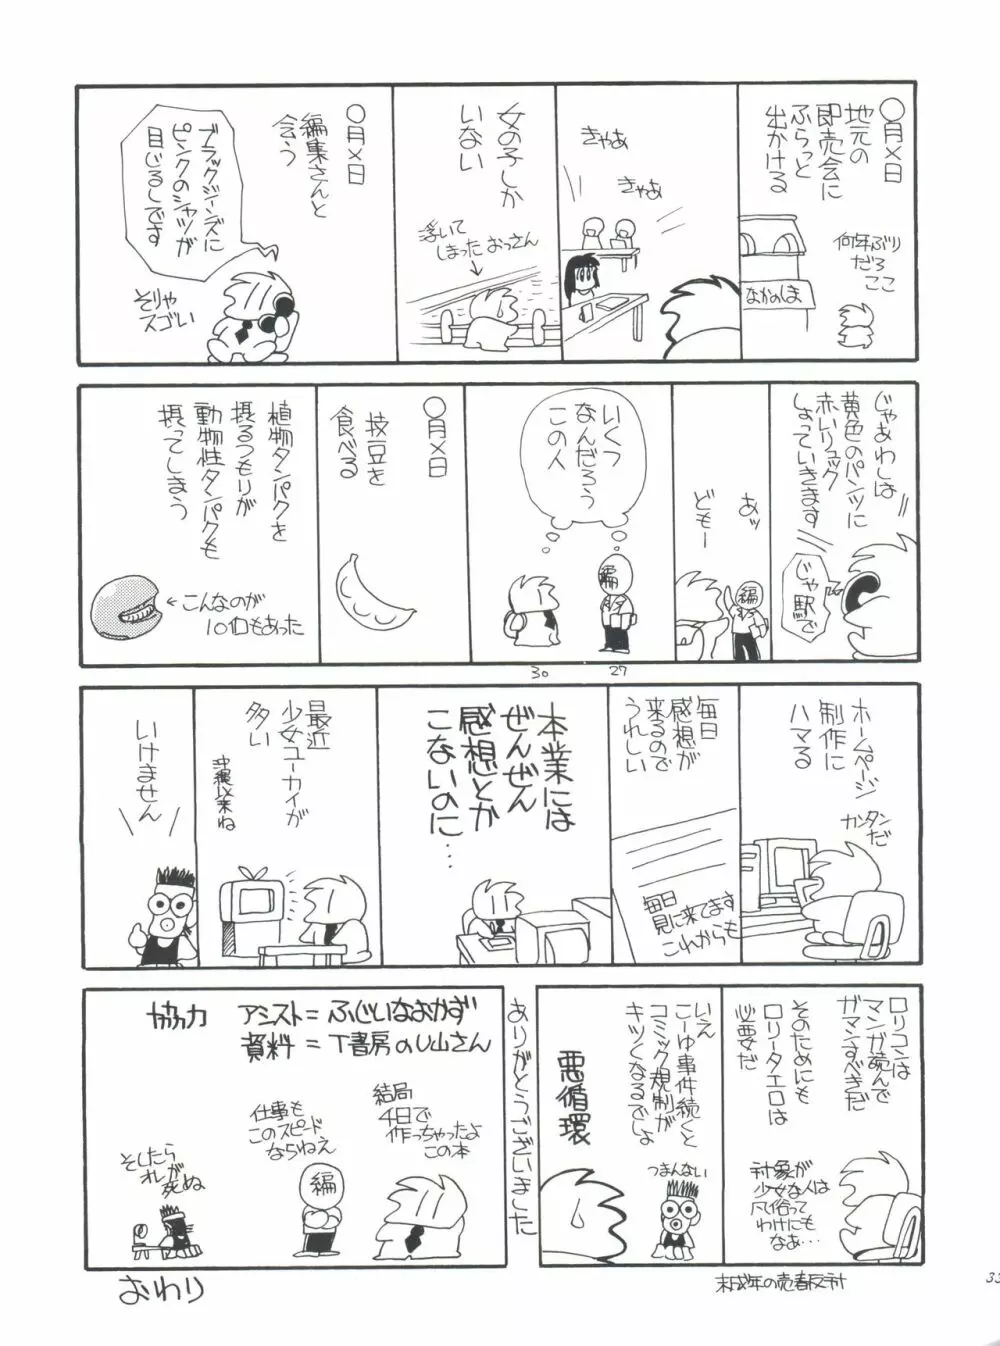 〇月×日
地元の
即売会に
ふらっと
出かける
何年ぶり
だろ
ここ
なかのしま
きゃあ
きゃあ
女の子しか
いない
浮いて
しまったおっさん
〇月×日
編集さんと
会う
ブラックジーンズに
ピンクのシャツが
目じるしです
そりゃ
スゴい
じゃあわしは
黄色のパンツに
赤いリュック
しょっていきます
じゃ駅で
あッ
どもー
編
いくつ
なんだろう
この人
編
30
27
〇月×日
枝豆を
食べる
植物タンパクを
摂るつもりが
動物性タンパクも
摂ってしまう
←こんなのが
10個もあった
ホームページ
制作に
ハマる
カンタン
だ
毎日
感想が
来るので
うれしい
毎日
見に来てます
これからも
本業には
ぜんぜん
感想とか
こないのに…
最近
少女ユーカイが
多い
沖縄以来ね
いけません
ロリコンは
マンガ読んで
ガマンすべきだ
そのためにも
ロリータエロは
必要だ
対象が
少女な人は
風俗って
わけにも
なあ…
いえ
こーゆ事件続くと
コミック規制が
キツくなるでしょ
つまんない
悪循環
未成年の売春反対
ありがとうございました
協力
アシスト=ふじいなおかず
資料=T書房のU山さん
結局
4日で
作っちゃったよ
この本
仕事も
このスピード
ならねえ
編
そしたら
オレが
死ぬ
おわり
33